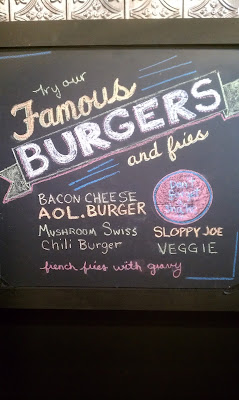 Try our
Famous
BURGERS
and fries
BACON CHEESE
A.O.L. BURGER
MUSHROOM SWISS
Chili Burger
Don't
Forget
SLOPPY JOE
VEGGIE
french fries with gravy